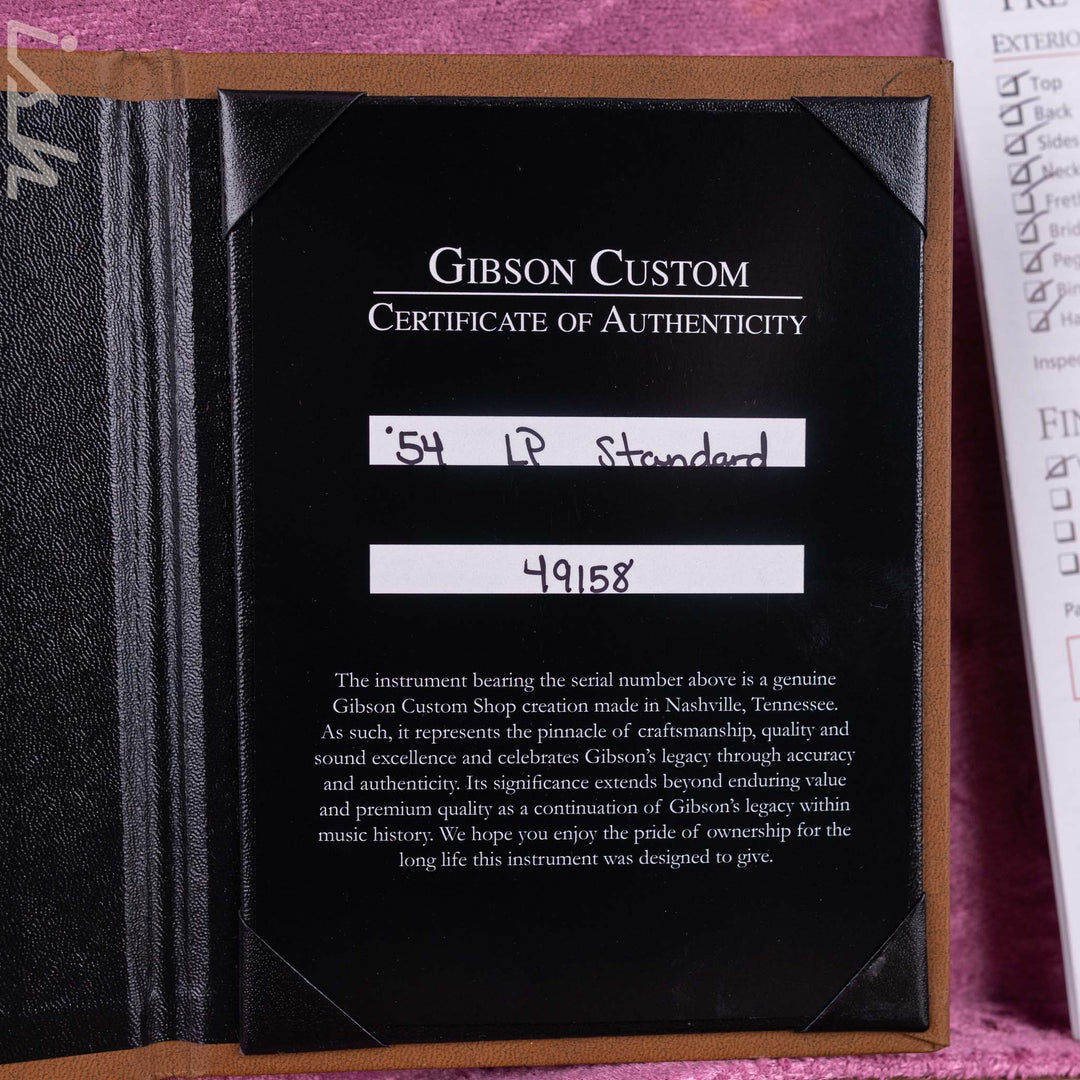 ish
GIBSON CUSTOM
CERTIFICATE OF AUTHENTICITY
'54 LP Standard
49158
The instrument bearing the serial number above is a genuine
Gibson Custom Shop creation made in Nashville, Tennessee.
As such, it represents the pinnacle of craftsmanship, quality and
sound excellence and celebrates Gibson's legacy through accuracy
and authenticity. Its significance extends beyond enduring value
and premium quality as a continuation of Gibson's legacy within
music history. We hope you enjoy the pride of ownership for the
long life this instrument was designed to give.
Top
Back
Sides